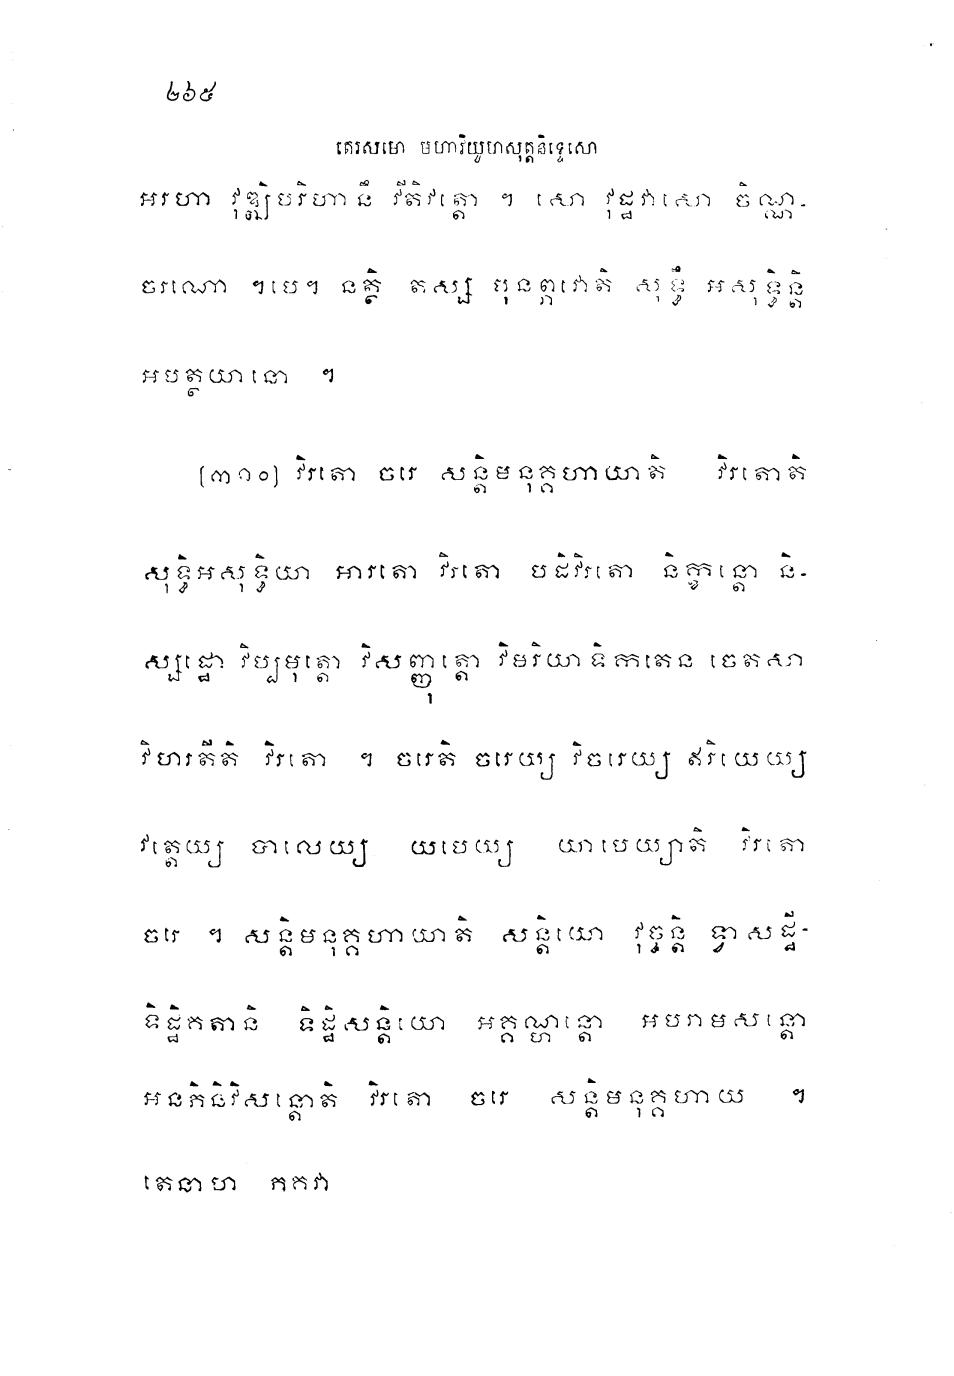 ២៦៥
តេរសមោ មហាវិយូហសុត្តនិទ្ទេសោ
អរហា វុឌ្ឍិបរិហានឹ វីតិវត្តោ ។ សោ វុដ្ឋវាសោ ចិណ្ណ-
ចរណោ ។បេ។ នត្ថិ តស្ស បុនព្ភវោតិ សុទ្ធឹ អសុទ្ធិន្តិ
អបត្ថយានោ ។
(៣១០) វិរតោ ចរេ សន្តិមនុគ្គហាយាតិ វិរតោតិ
សុទ្ធិអសុទ្ធិយា អារតោ វិរតោ បដិវិរតោ និក្ខន្តោ និ-
ស្សដ្ឋោ វិប្បមុត្តោ វិសញ្ញុត្តោ វិមរិយាទិកតេន ចេតសា
វិហរតីតិ វិរតោ ។ ចរេតិ ចរេយ្យ វិចរេយ្យ ឥរិយេយ្យ
វត្តេយ្យ បាលេយ្យ យបេយ្យ យាបេយ្យាតិ វិរតោ
ចរេ ។ សន្តិមនុគ្គហាយាតិ សន្តិយោ វុច្ចន្តិ ទ្វាសដ្ឋី-
ទិដ្ឋិគតានិ ទិដ្ឋិសន្តិយោ អគ្គណ្ហន្តោ អបរាមសន្តោ
អនភិនិវិសន្តោតិ វិរតោ ចរេ សន្តិមនុគ្គហាយ ។
តេនាហ ភគវា